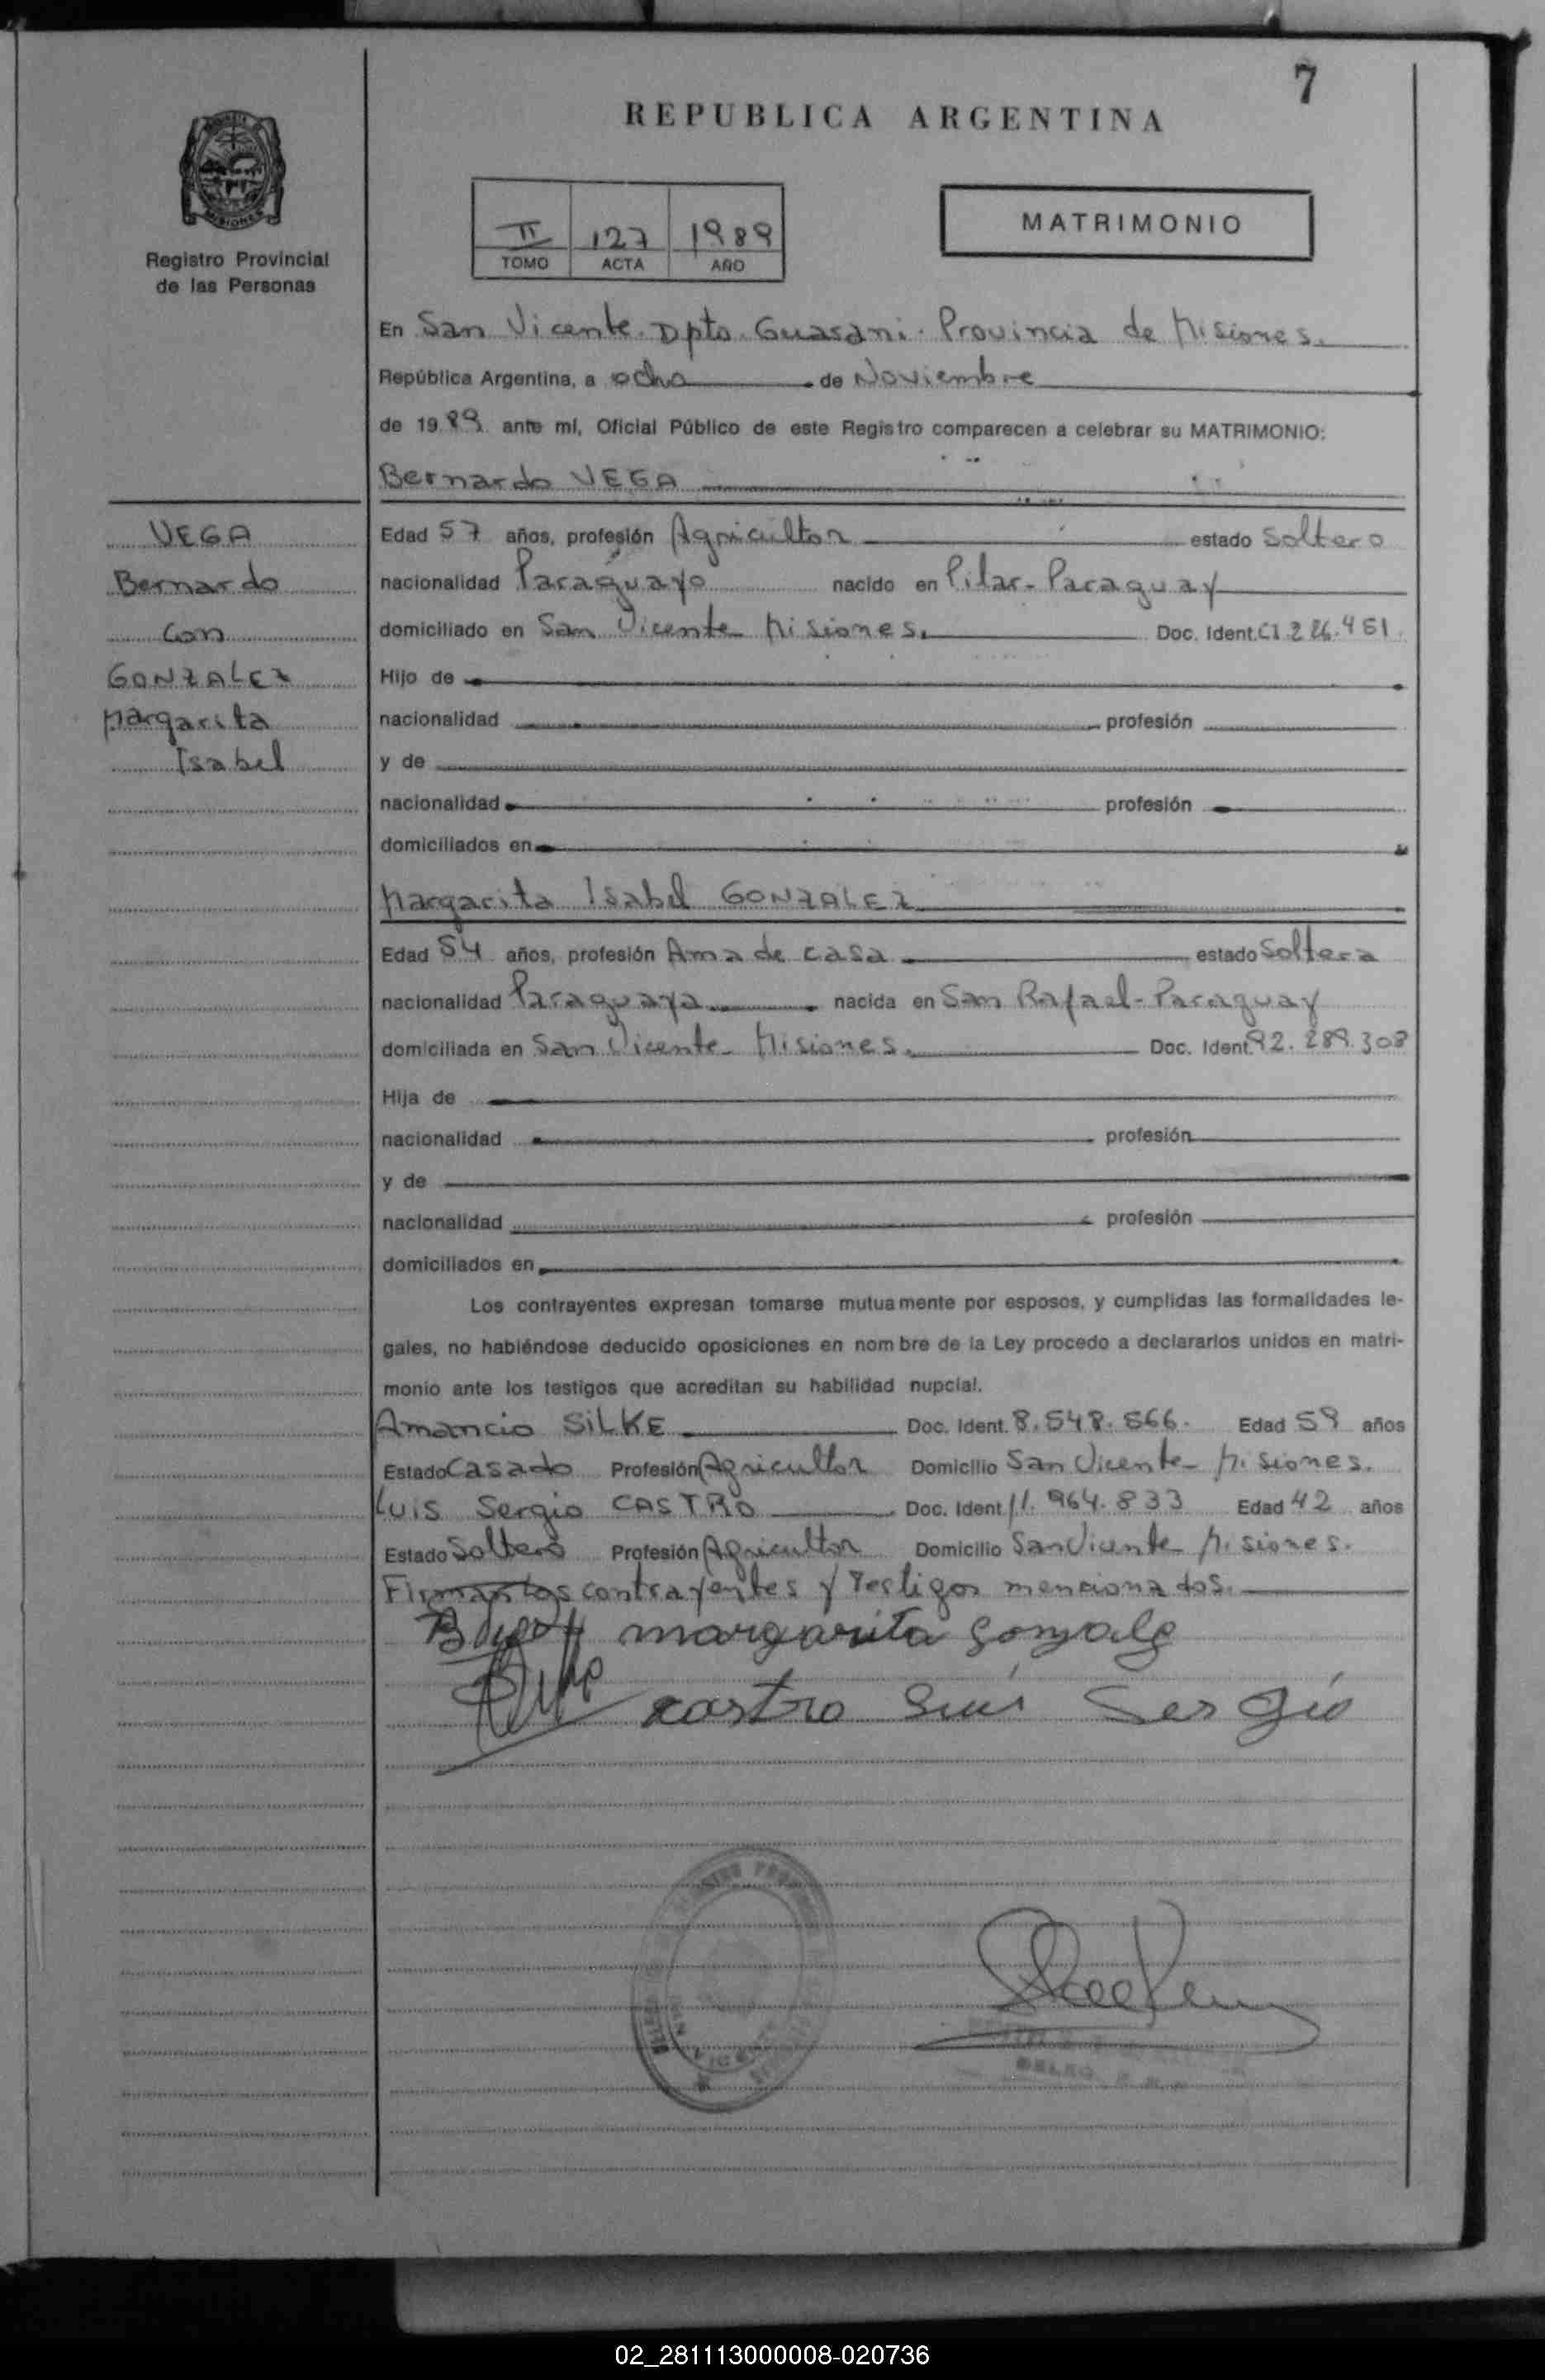 7
REPUBLICA ARGENTINA
MISIONES
Registro Provincial
de las Personas
II 127 1989
TOMO ACTA AÑO
MATRIMONIO
En San Vicente. Dpto. Guasani. Provincia de Misiones.
República Argentina, a ocho de Noviembre
de 1989 ante mí, Oficial Público de este Registro comparecen a celebrar su MATRIMONIO:
Bernardo VEGA
VEGA
Bernardo
con
GONZALEZ
Margarita
Isabel
Edad 57 años, profesión Agricultor estado Soltero
nacionalidad Paraguayo nacido en Pilar-Paraguay
domiciliado en San Vicente Misiones. Doc. Ident. CI.226.451.
Hijo de
nacionalidad profesión
y de
nacionalidad profesión
domiciliados en
Margarita Isabel GONZALEZ
Edad 54 años, profesión Ama de casa estado Soltera
nacionalidad Paraguaya nacida en San Rafael-Paraguay
domiciliada en San Vicente Misiones. Doc. Ident. 92.289.308
Hija de
nacionalidad profesión
y de
nacionalidad profesión
domiciliados en
Los contrayentes expresan tomarse mutuamente por esposos, y cumplidas las formalidades le-
gales, no habiéndose deducido oposiciones en nombre de la Ley procedo a declararlos unidos en matri-
monio ante los testigos que acreditan su habilidad nupcial.
Amancio SILKE Doc. Ident. 8.548.566. Edad 59 años
Estado Casado Profesión Agricultor Domicilio San Vicente- Misiones.
Luis Sergio CASTRO Doc. Ident. 11.964.833 Edad 42 años
Estado Soltero Profesión Agricultor Domicilio San Vicente Misiones.
Firman los contrayentes y Testigos mencionados.
margarita gonzale
castro Luis Sergio
02_281113000008-020736